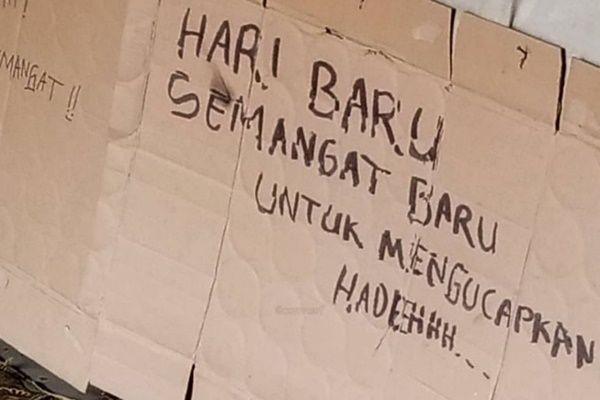 HARI BARU
SEMANGAT BARU
UNTUK MENGUCAPKAN
HADEHHH...